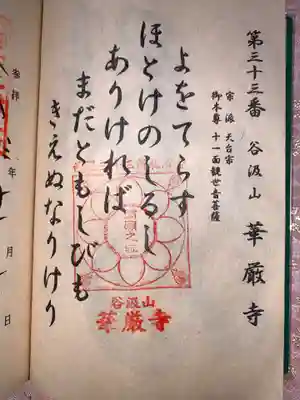 第三十三番 谷汲山 華厳寺
宗派 天台宗
御本尊 十一面観世音菩薩
よをてらす
ほとけのしるし
ありければ
まだともしびも
きえぬなりけり
谷汲山
華厳寺
月
日